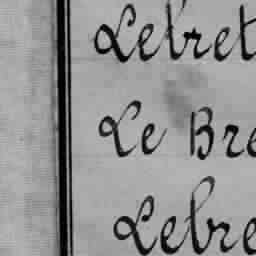 Lebret
Le Bre
Lebre